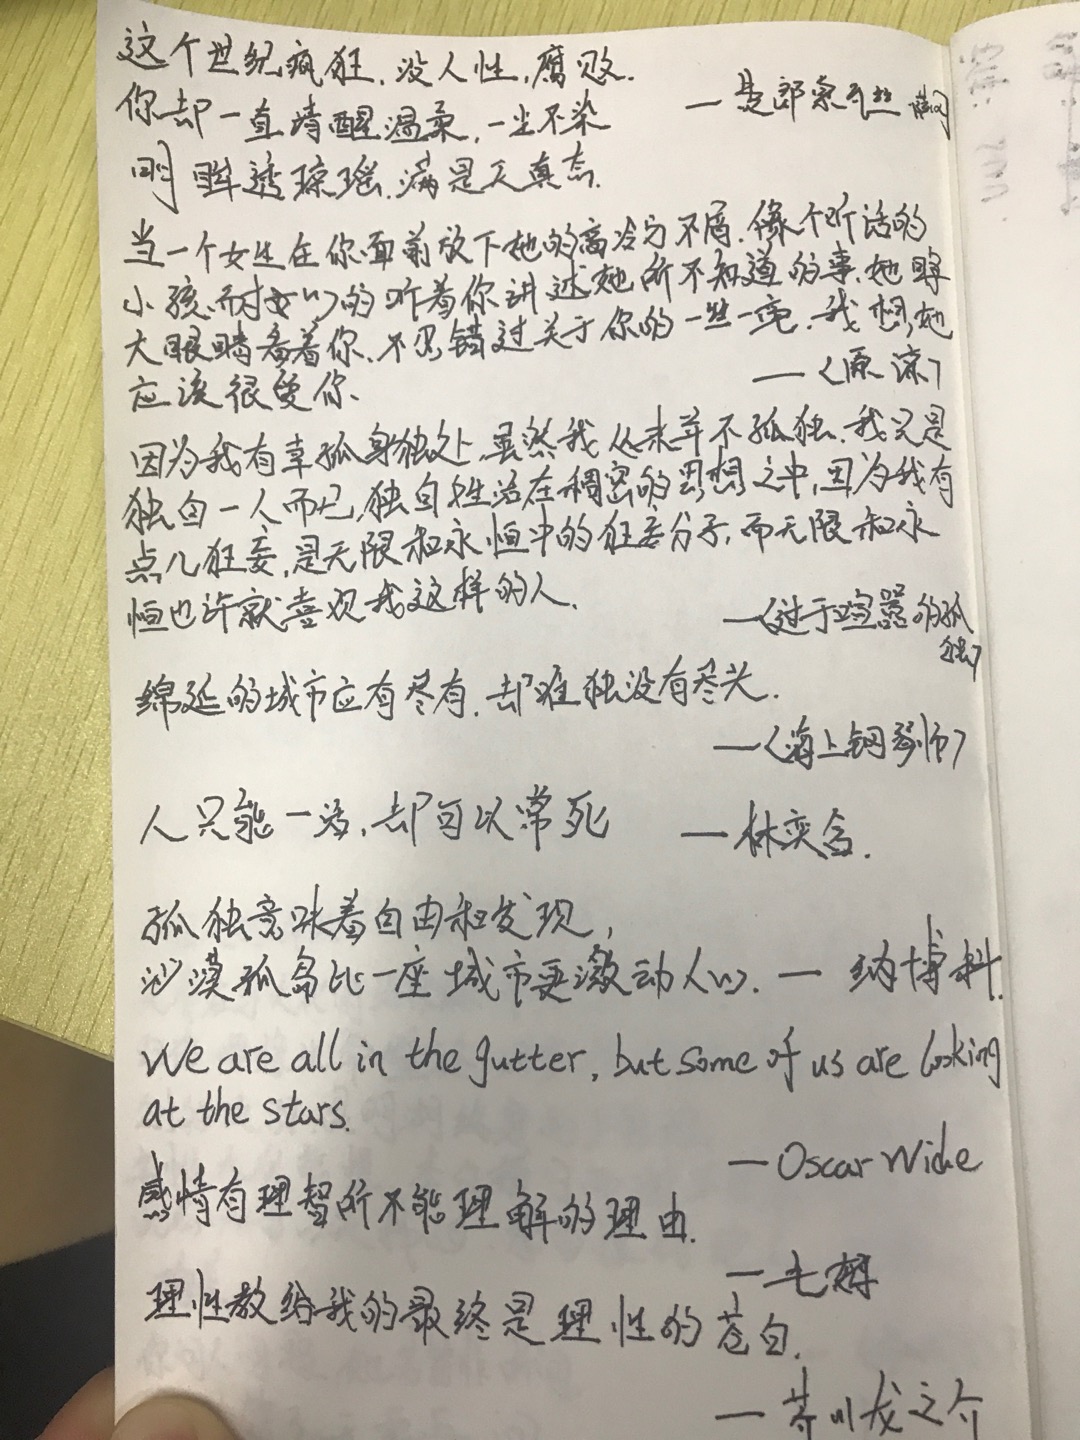 这个世纪疯狂,没人性,腐败.
你却一直清醒温柔,一尘不染
—是郎索瓦丝
明眸透琼瑶.满是天真态.
当一个女生在你面前放下她的高冷与不屑.像个听话的
小孩.而耐心的听着你讲述她所不知道的事.她睁
大眼睛看着你.不想错过关于你的一丝一毫.我想她
应该很爱你.
—〈原谅〉
因为我有幸孤身独处,虽然我从来并不孤独.我只是
独自一人而已,独自生活在稠密的思想之中,因为我有
点儿狂妄,是无限和永恒中的狂妄分子,而无限和永
恒也许就喜欢我这样的人.
—〈过于喧嚣的孤
独〉
绵延的城市应有尽有.却唯独没有尽头.
—〈海上钢琴师〉
人只能一活,却可以常死
—林奕含.
孤独意味着自由和发现,
沙漠孤岛比一座城市更激动人心.—纳博科.
We are all in the gutter, but some of us are looking
at the stars.
—Oscar Wide
感情有理智所不能理解的理由.
—毛姆
理性教给我的最终是理性的苍白.
—芥川龙之介